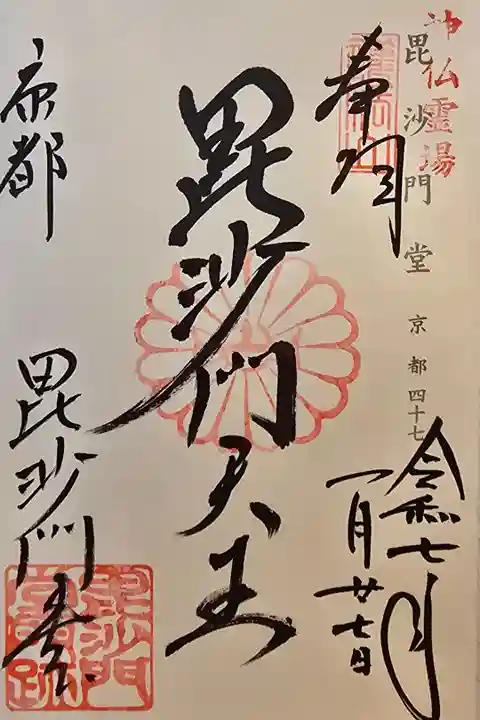 神仏霊場
毘沙門堂 京都四十七
奉拝
令和七年
一月廿七日
毘沙門天王
京都
毘沙門堂
毘沙門
堂門跡